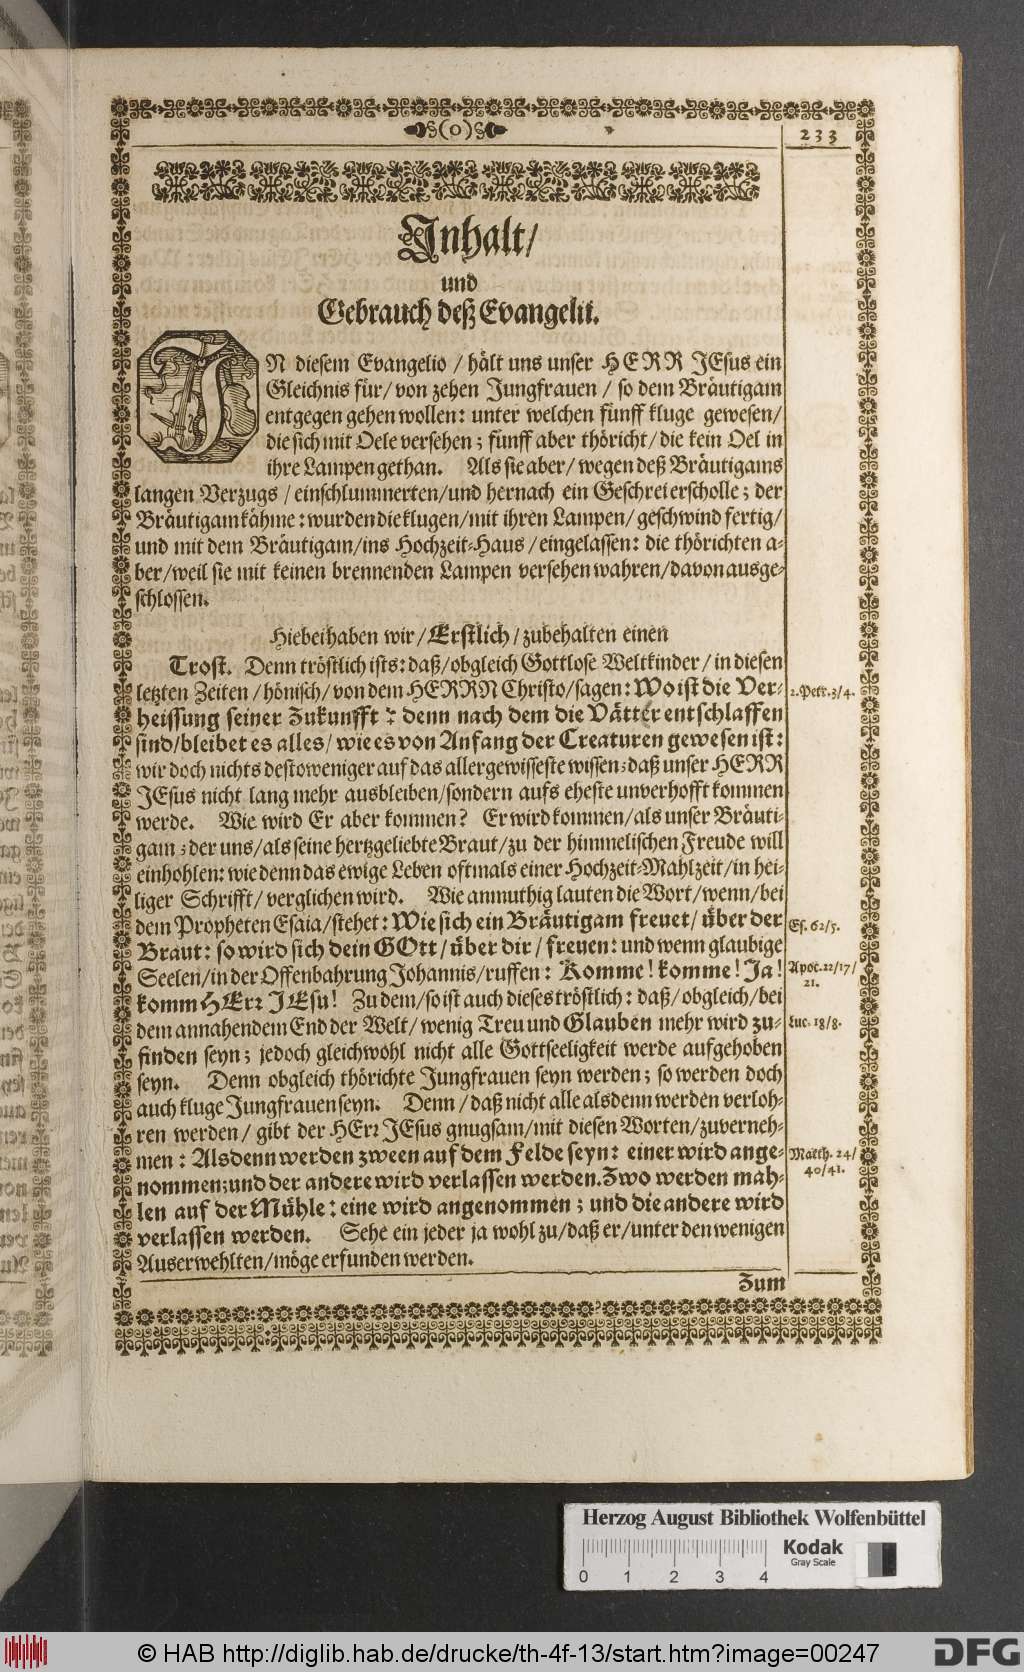 §(0)§
233
Inhalt/
und
Gebrauch deß Evangelii.
IN diesem Evangelio / hält uns unser HERR JEsus ein
Gleichnis für/ von zehen Jungfrauen / so dem Bräutigam
entgegen gehen wollen: unter welchen fünff kluge gewesen/
die sich mit Oele versehen; fünff aber thöricht/ die kein Oel in
ihre Lampen gethan. Als sie aber/ wegen deß Bräutigams
langen Verzugs / einschlummerten/und hernach ein Geschrei erscholle; der
Bräutigam kähme: wurden die klugen/mit ihren Lampen/ geschwind fertig/
und mit dem Bräutigam/ins Hochzeit-Haus / eingelassen: die thörichten a-
ber/weil sie mit keinen brennenden Lampen versehen wahren/davon ausge-
schlossen.
Hiebei haben wir/ Erstlich/ zubehalten einen
Trost. Denn tröstlich ists: daß/obgleich Gottlose Weltkinder / in diesen
letzten Zeiten / hönisch/ von dem HERRN Christo/sagen: Wo ist die Ver-
2. Petr. 3/4.
heissung seiner Zukunfft? denn nach dem die Vätter entschlaffen
sind/bleibet es alles/ wie es von Anfang der Creaturen gewesen ist:
wir doch nichts destoweniger auf das allergewisseste wissen; daß unser HERR
JEsus nicht lang mehr ausbleiben/sondern aufs eheste unverhofft kommen
werde. Wie wird Er aber kommen? Er wird kommen/als unser Bräuti-
gam; der uns/als seine hertzgeliebte Braut/zu der himmelischen Freude will
einhohlen: wie denn das ewige Leben oftmals einer Hochzeit-Mahlzeit/in hei-
liger Schrifft/ verglichen wird. Wie anmuthig lauten die Wort/wenn/bei
dem Propheten Esaia/stehet: Wie sich ein Bräutigam freuet/ über der
Es. 62/5.
Braut: so wird sich dein GOtt/ über dir/ freuen: und wenn glaubige
Seelen/in der Offenbahrung Johannis/ruffen: Komme! komme! Ja!
Apoc. 22/17/
21.
komm HErr JEsu! Zu dem/so ist auch dieses tröstlich: daß/obgleich/bei
dem annahendem End der Welt/ wenig Treu und Glauben mehr wird zu-
Luc. 18/8.
finden seyn; jedoch gleichwohl nicht alle Gottseeligkeit werde aufgehoben
seyn. Denn obgleich thörichte Jungfrauen seyn werden; so werden doch
auch kluge Jungfrauen seyn. Denn/ daß nicht alle alsdenn werden verloh-
ren werden/ gibt der HErr JEsus gnugsam/mit diesen Worten/zuverneh-
men: Alsdenn werden zween auf dem Felde seyn: einer wird ange-
Matth. 24/
40/41.
nommen; und der andere wird verlassen werden. Zwo werden mah-
len auf der Mühle: eine wird angenommen; und die andere wird
verlassen werden. Sehe ein jeder ja wohl zu/daß er/unter den wenigen
Auserwehlten/möge erfunden werden.
Zum
Herzog August Bibliothek Wolfenbüttel
0 1 2 3 4
Kodak
Gray Scale
© HAB http://diglib.hab.de/drucke/th-4f-13/start.htm?image=00247
DFG